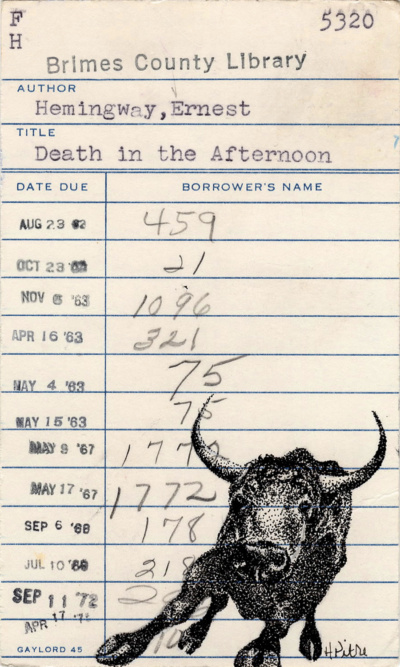 F 5320
H
Brimes County Library
AUTHOR
Hemingway, Ernest
TITLE
Death in the Afternoon
DATE DUE BORROWER'S NAME
AUG 23 459
OCT 23 21
NOV '63 1096
APR 16 '63 321
MAY 4 '63 75
MAY 15 '63 75
MAY 9 '67
MAY 17 '67 1772
SEP 6 '68 178
JUL 10 218
SEP 11 '72
APR 17
GAYLORD 45 HPitre